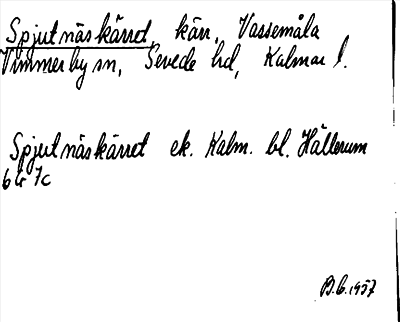 Spjutnäskärret, kärr, Vassemåla
Vimmerby sn, Sevede hd, Kalmar l.
Spjutnäskärret ek. Kalm. bl. Hällerum
6G 7c
B.G. 1957